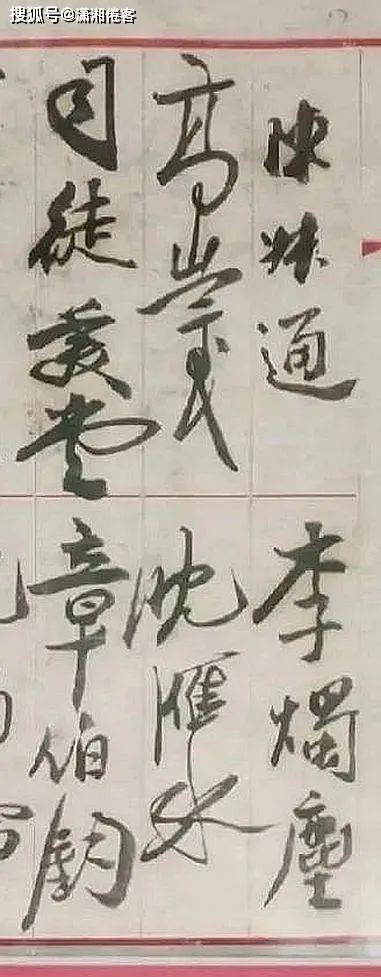 搜狐号@潇湘捲客
陳叔通
高崇民
司徒美堂
李燭塵
沈雁冰
章伯鈞